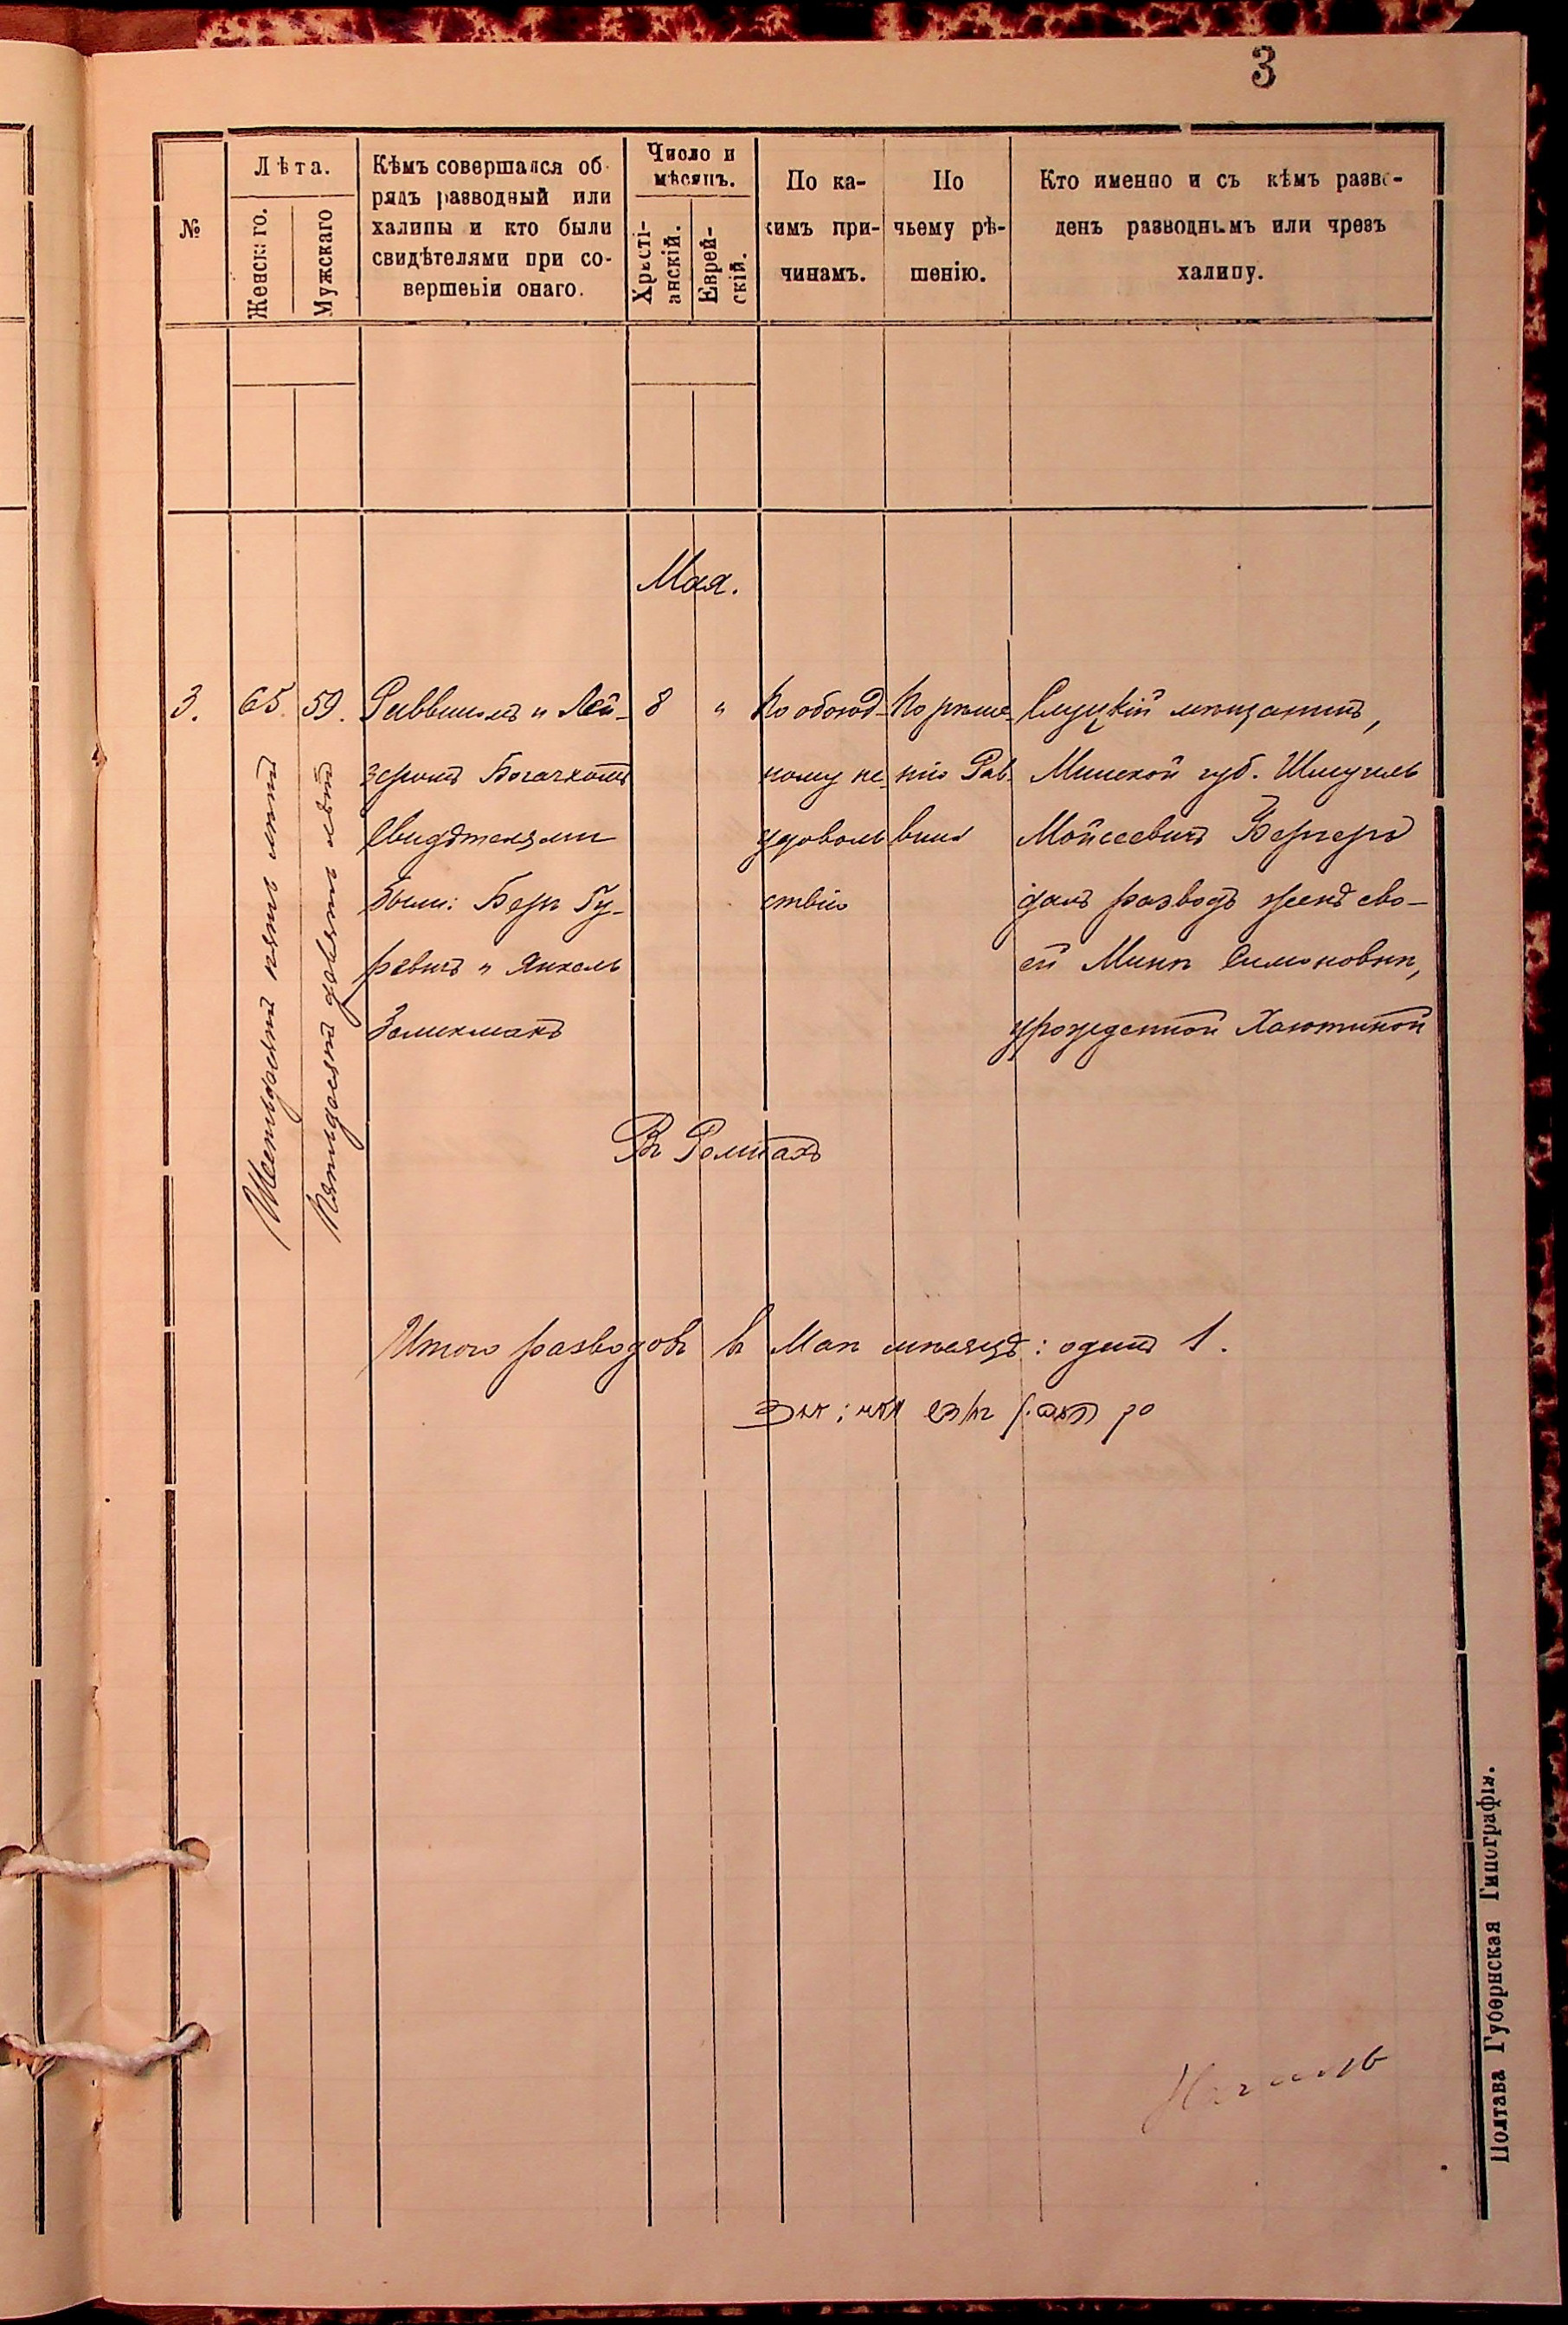 3
№
Лѣта.
Женскаго.
Мужскаго
Кѣмъ совершался об-
рядъ разводный или
халицы и кто были
свидѣтелями при со-
вершеніи онаго.
Число и
мѣсяцъ.
Хрьсті-
анскій.
Еврей-
скій.
По ка-
кимъ при-
чинамъ.
По
чьему рѣ-
шенію.
Кто именно и съ кѣмъ разве-
денъ разводнымъ или чрезъ
халицу.
Мая.
3.
65.
Шестьдесятъ пять лѣтъ
59.
Пятьдесятъ девять лѣтъ
Раввиномъ и Лей-
зеромъ
Свидѣтелями
были: Беръ Гу-
ревичъ и Янкель
Зеликманъ
8
"
По обоюд-
ному не-
удоволь
ствію
По рѣше-
нію Рав-
вина
Слуцкій мѣщанинъ,
Минской губ. Шмуилъ
Мойсеевичъ Бергеръ
далъ разводъ женѣ сво-
ей Минѣ Симоновнѣ,
урожденной Хаютиной
Въ Ромнахъ
Итого разводовъ въ Маѣ мѣсяцѣ: одинъ 1.
Полтава Губернская Типографія.